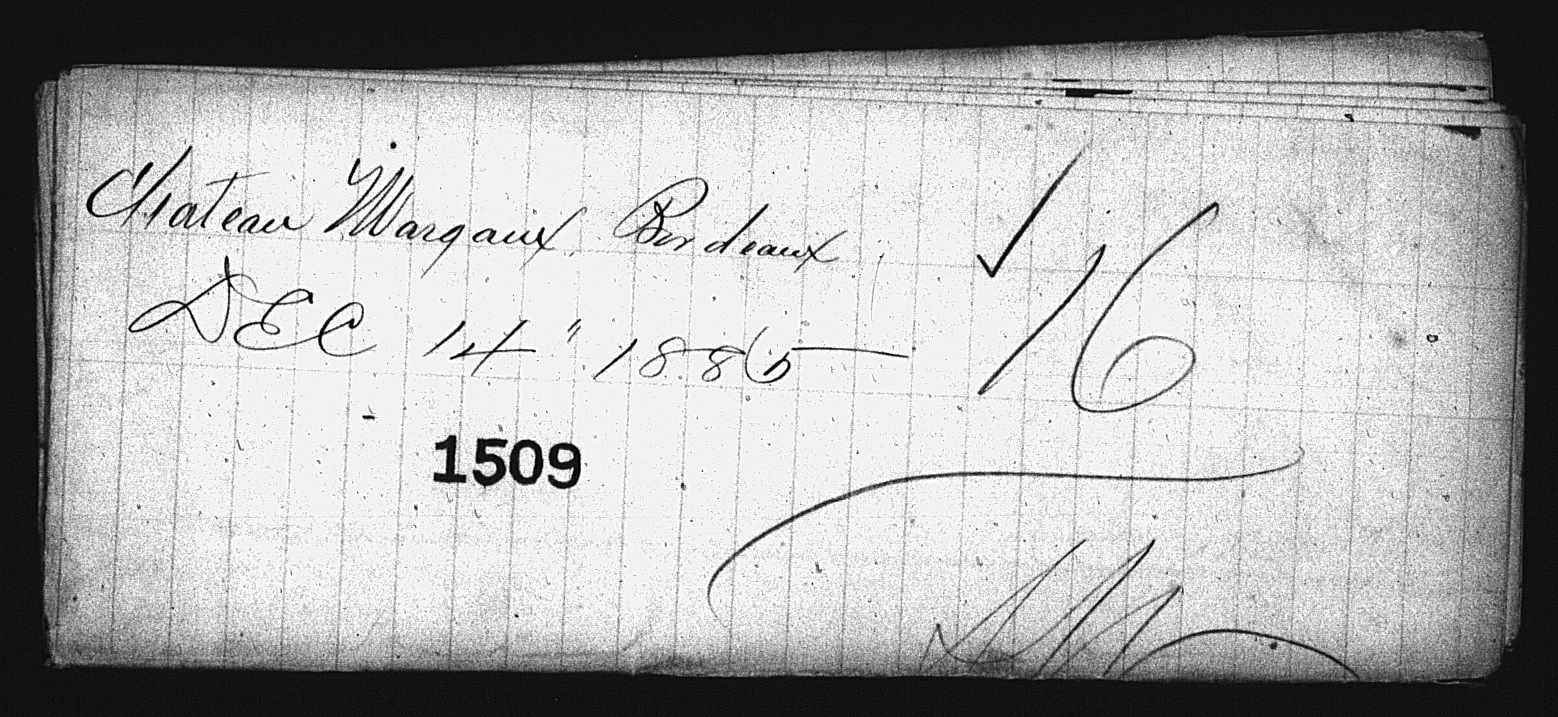 Chateau Margaux Bordeaux
DEC 14" 1885
✓ 16
1509